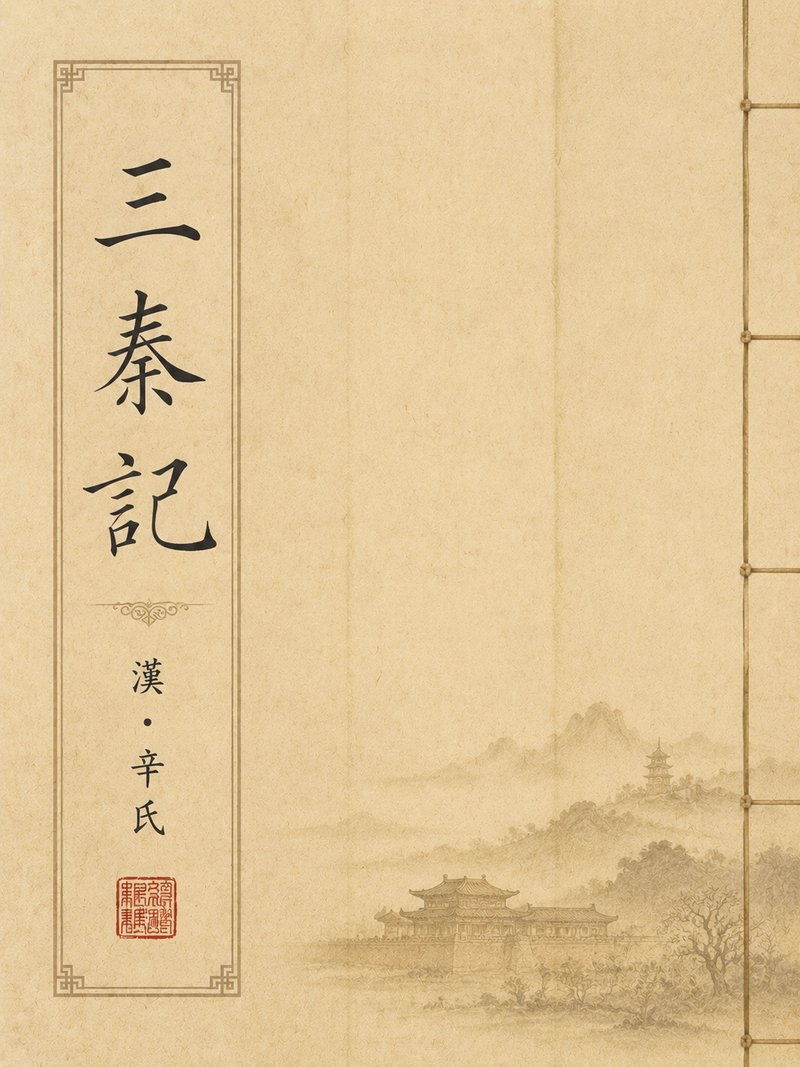 三秦記
漢・辛氏